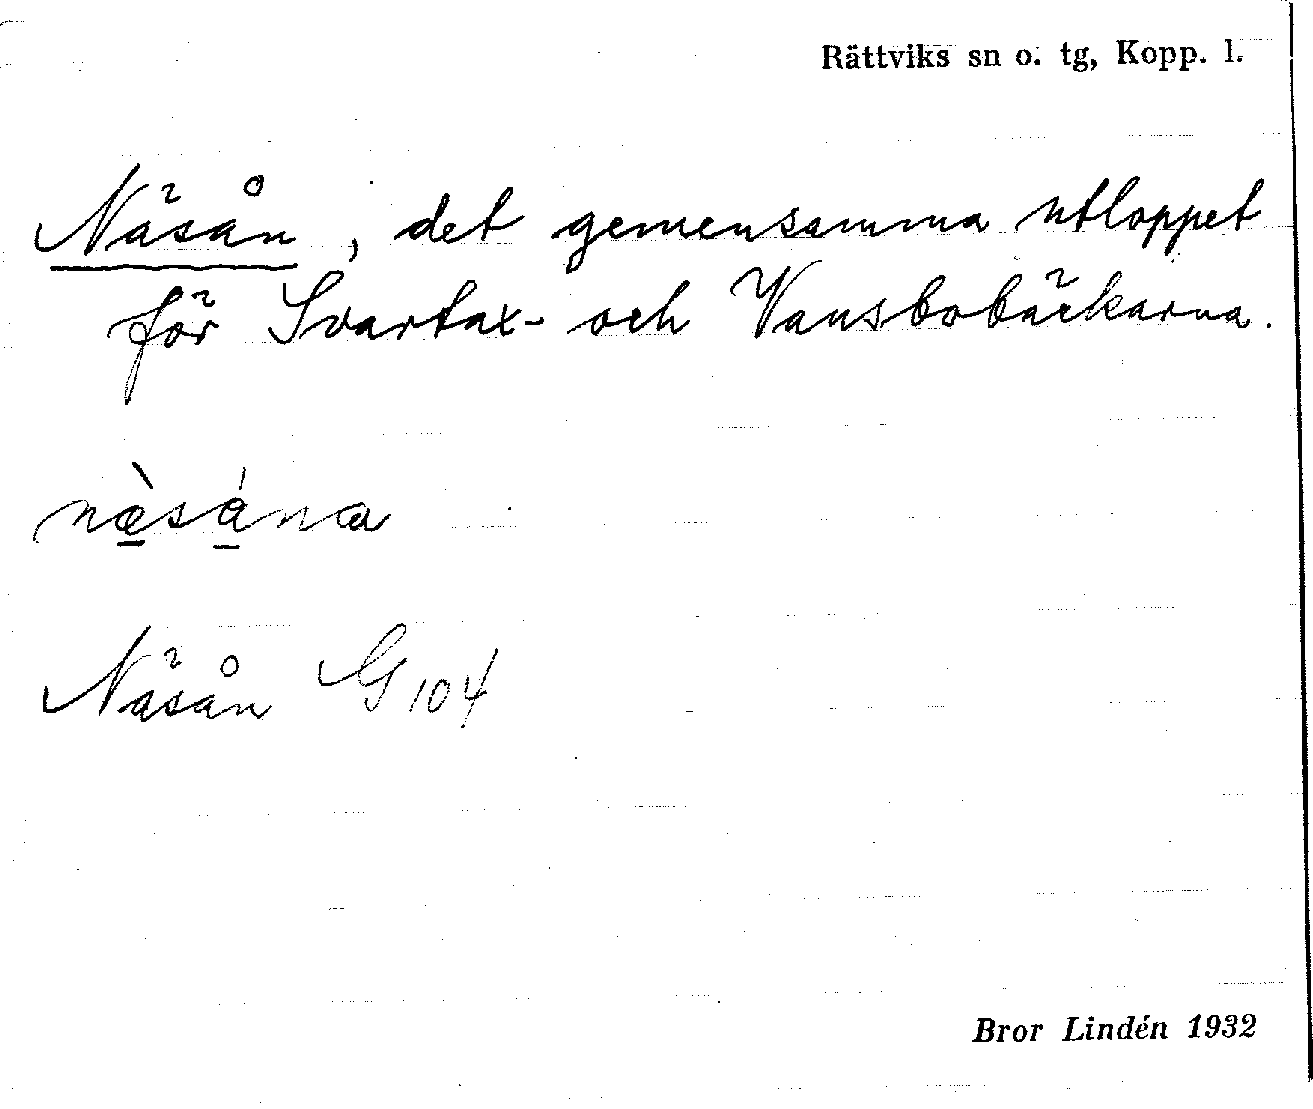 Rättviks sn o. tg, Kopp. l.
Näsån, det gemensamma utloppet
för Svartax- och Vansbobäckarna.
næ̠̀sá̠na
Näsån G 104
Bror Lindén 1932